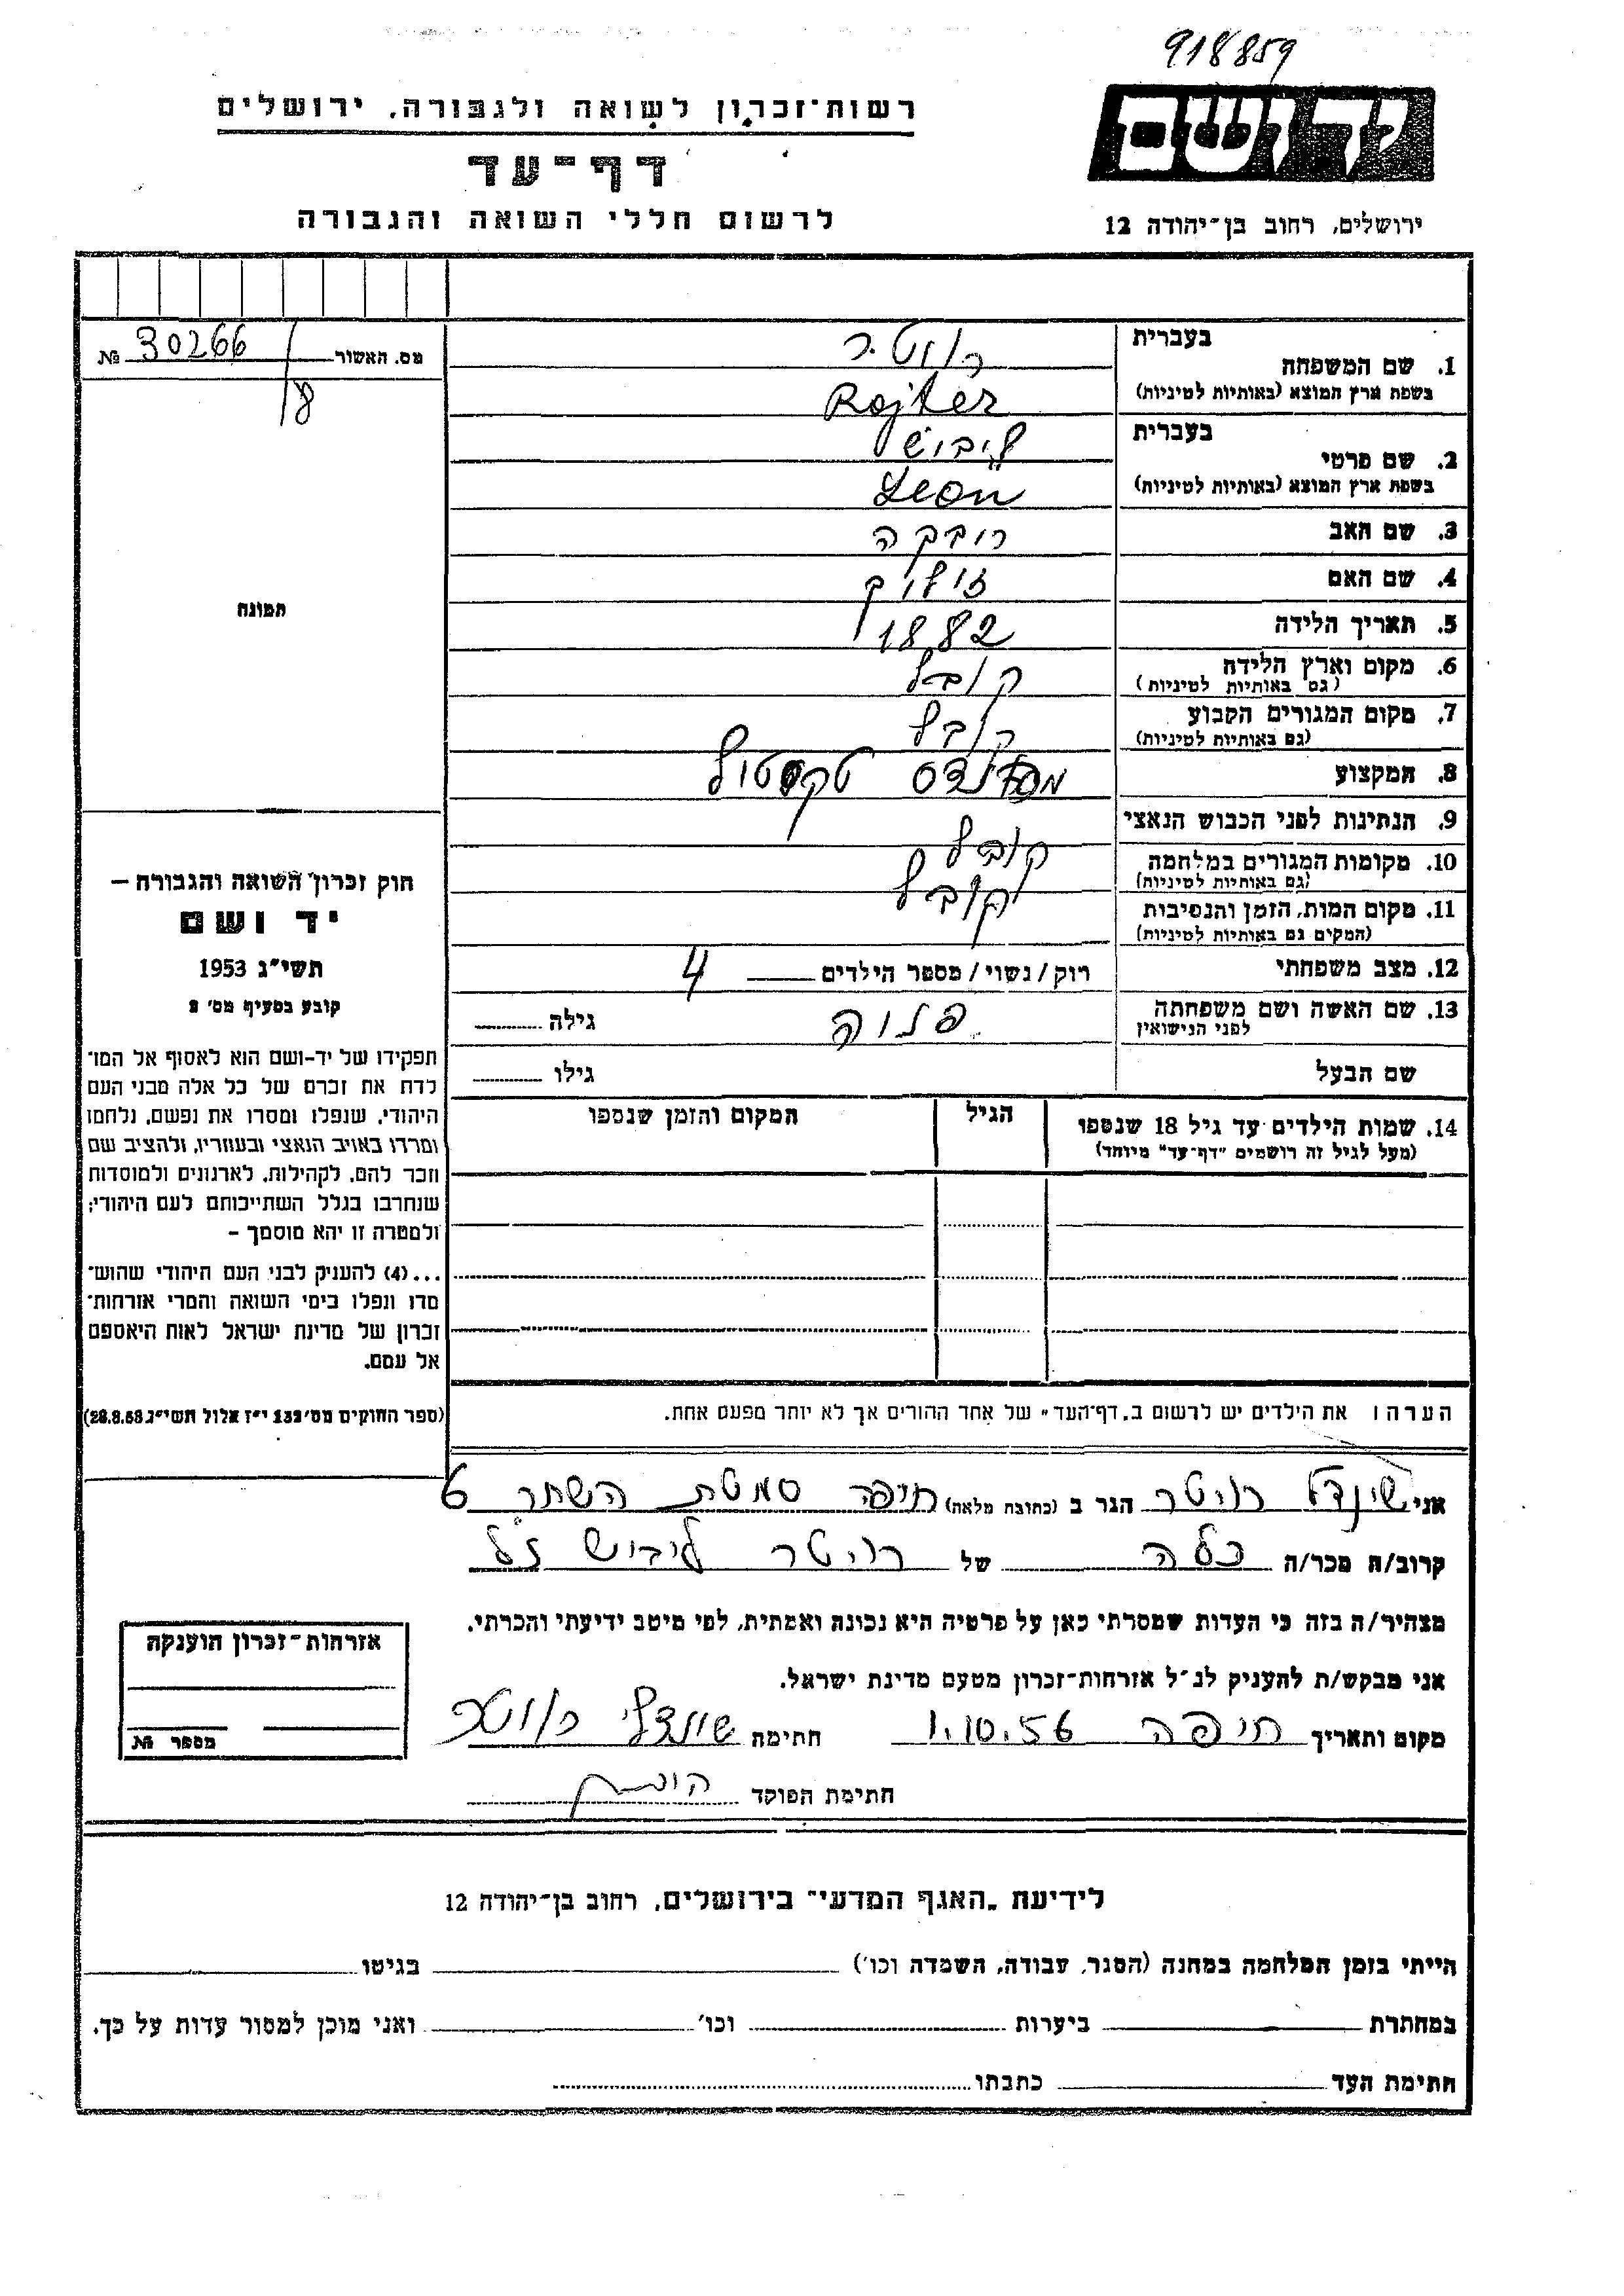 918859
רשות־זכרון לשואה ולגבורה, ירושלים
יד ושם
דף־עד
לרשום חללי השואה והגבורה
ירושלים, רחוב בן־יהודה 12
מס. האשור 30266 №
8
בעברית
1. שם המשפחה רויטר
בשפת ארץ המוצא (באותיות לטיניות) Rojter
בעברית
2. שם פרטי לייבוש
בשפת ארץ המוצא (באותיות לטיניות) Leon
3. שם האב רובקה
4. שם האם זיליק
5. תאריך הלידה 1882
6. מקום וארץ הלידה קובל
(גם באותיות לטיניות)
7. מקום המגורים הקבוע קובל
(גם באותיות לטיניות)
8. המקצוע טקסטיל
9. הנתינות לפני הכבוש הנאצי
10. מקומות המגורים במלחמה קובל
(גם באותיות לטיניות)
11. מקום המות, הזמן והנסיבות קובל
(המקום גם באותיות לטיניות)
12. מצב משפחתי רוק/נשוי/מספר הילדים 4
13. שם האשה ושם משפחתה גילה
לפני הנישואין
שם הבעל גילו
14. שמות הילדים עד גיל 18 שנספו
(מעל לגיל זה רושמים "דף־עד" מיוחד)
הגיל
המקום והזמן שנספו
תמונה
חוק זכרון השואה והגבורה –
יד ושם
תשי״ג 1953
קובע בסעיף מס׳ 2
תפקידו של יד-ושם הוא לאסוף אל המו־
לדת את זכרם של כל אלה מבני העם
היהודי, שנפלו ומסרו את נפשם, נלחמו
ומרדו באויב הנאצי ובעוזריו, ולהציב שם
וזכר להם, לקהילות, לארגונים ולמוסדות
שנחרבו בגלל השתייכותם לעם היהודי;
ולמטרה זו יהא מוסמך –
...(4) להעניק לבני העם היהודי שהוש־
מדו ונפלו בימי השואה והמרי אזרחות־
זכרון של מדינת ישראל לאות היאספם
אל עמם.
(ספר החוקים מס׳ 132 י״ז אלול תשי״ג 28.8.53)
הערה: את הילדים יש לרשום ב„דף־העד" של אחד ההורים אך לא יותר מפעם אחת.
אני שינדל רויטר הגר ב (כתובת מלאה) חיפה סמטת השחר 6
קרוב/ה מכר/ה כלה של רויטר לייבוש ז״ל
מצהיר/ה בזה כי העדות שמסרתי כאן על פרטיה היא נכונה ואמתית, לפי מיטב ידיעתי והכרתי.
אני מבקש/ת להעניק לנ״ל אזרחות־זכרון מטעם מדינת ישראל.
מקום ותאריך חיפה 1.10.56 חתימה שינדל רויטר
חתימת הפוקד
אזרחות־זכרון הוענקה
מספר №
לידיעת „האגף המדעי" בירושלים, רחוב בן־יהודה 12
הייתי בזמן המלחמה במחנה (הסגר, עבודה, השמדה וכו׳) בגיטו
במחתרת ביערות וכו׳ ואני מוכן למסור עדות על כך.
חתימת העד כתבתו